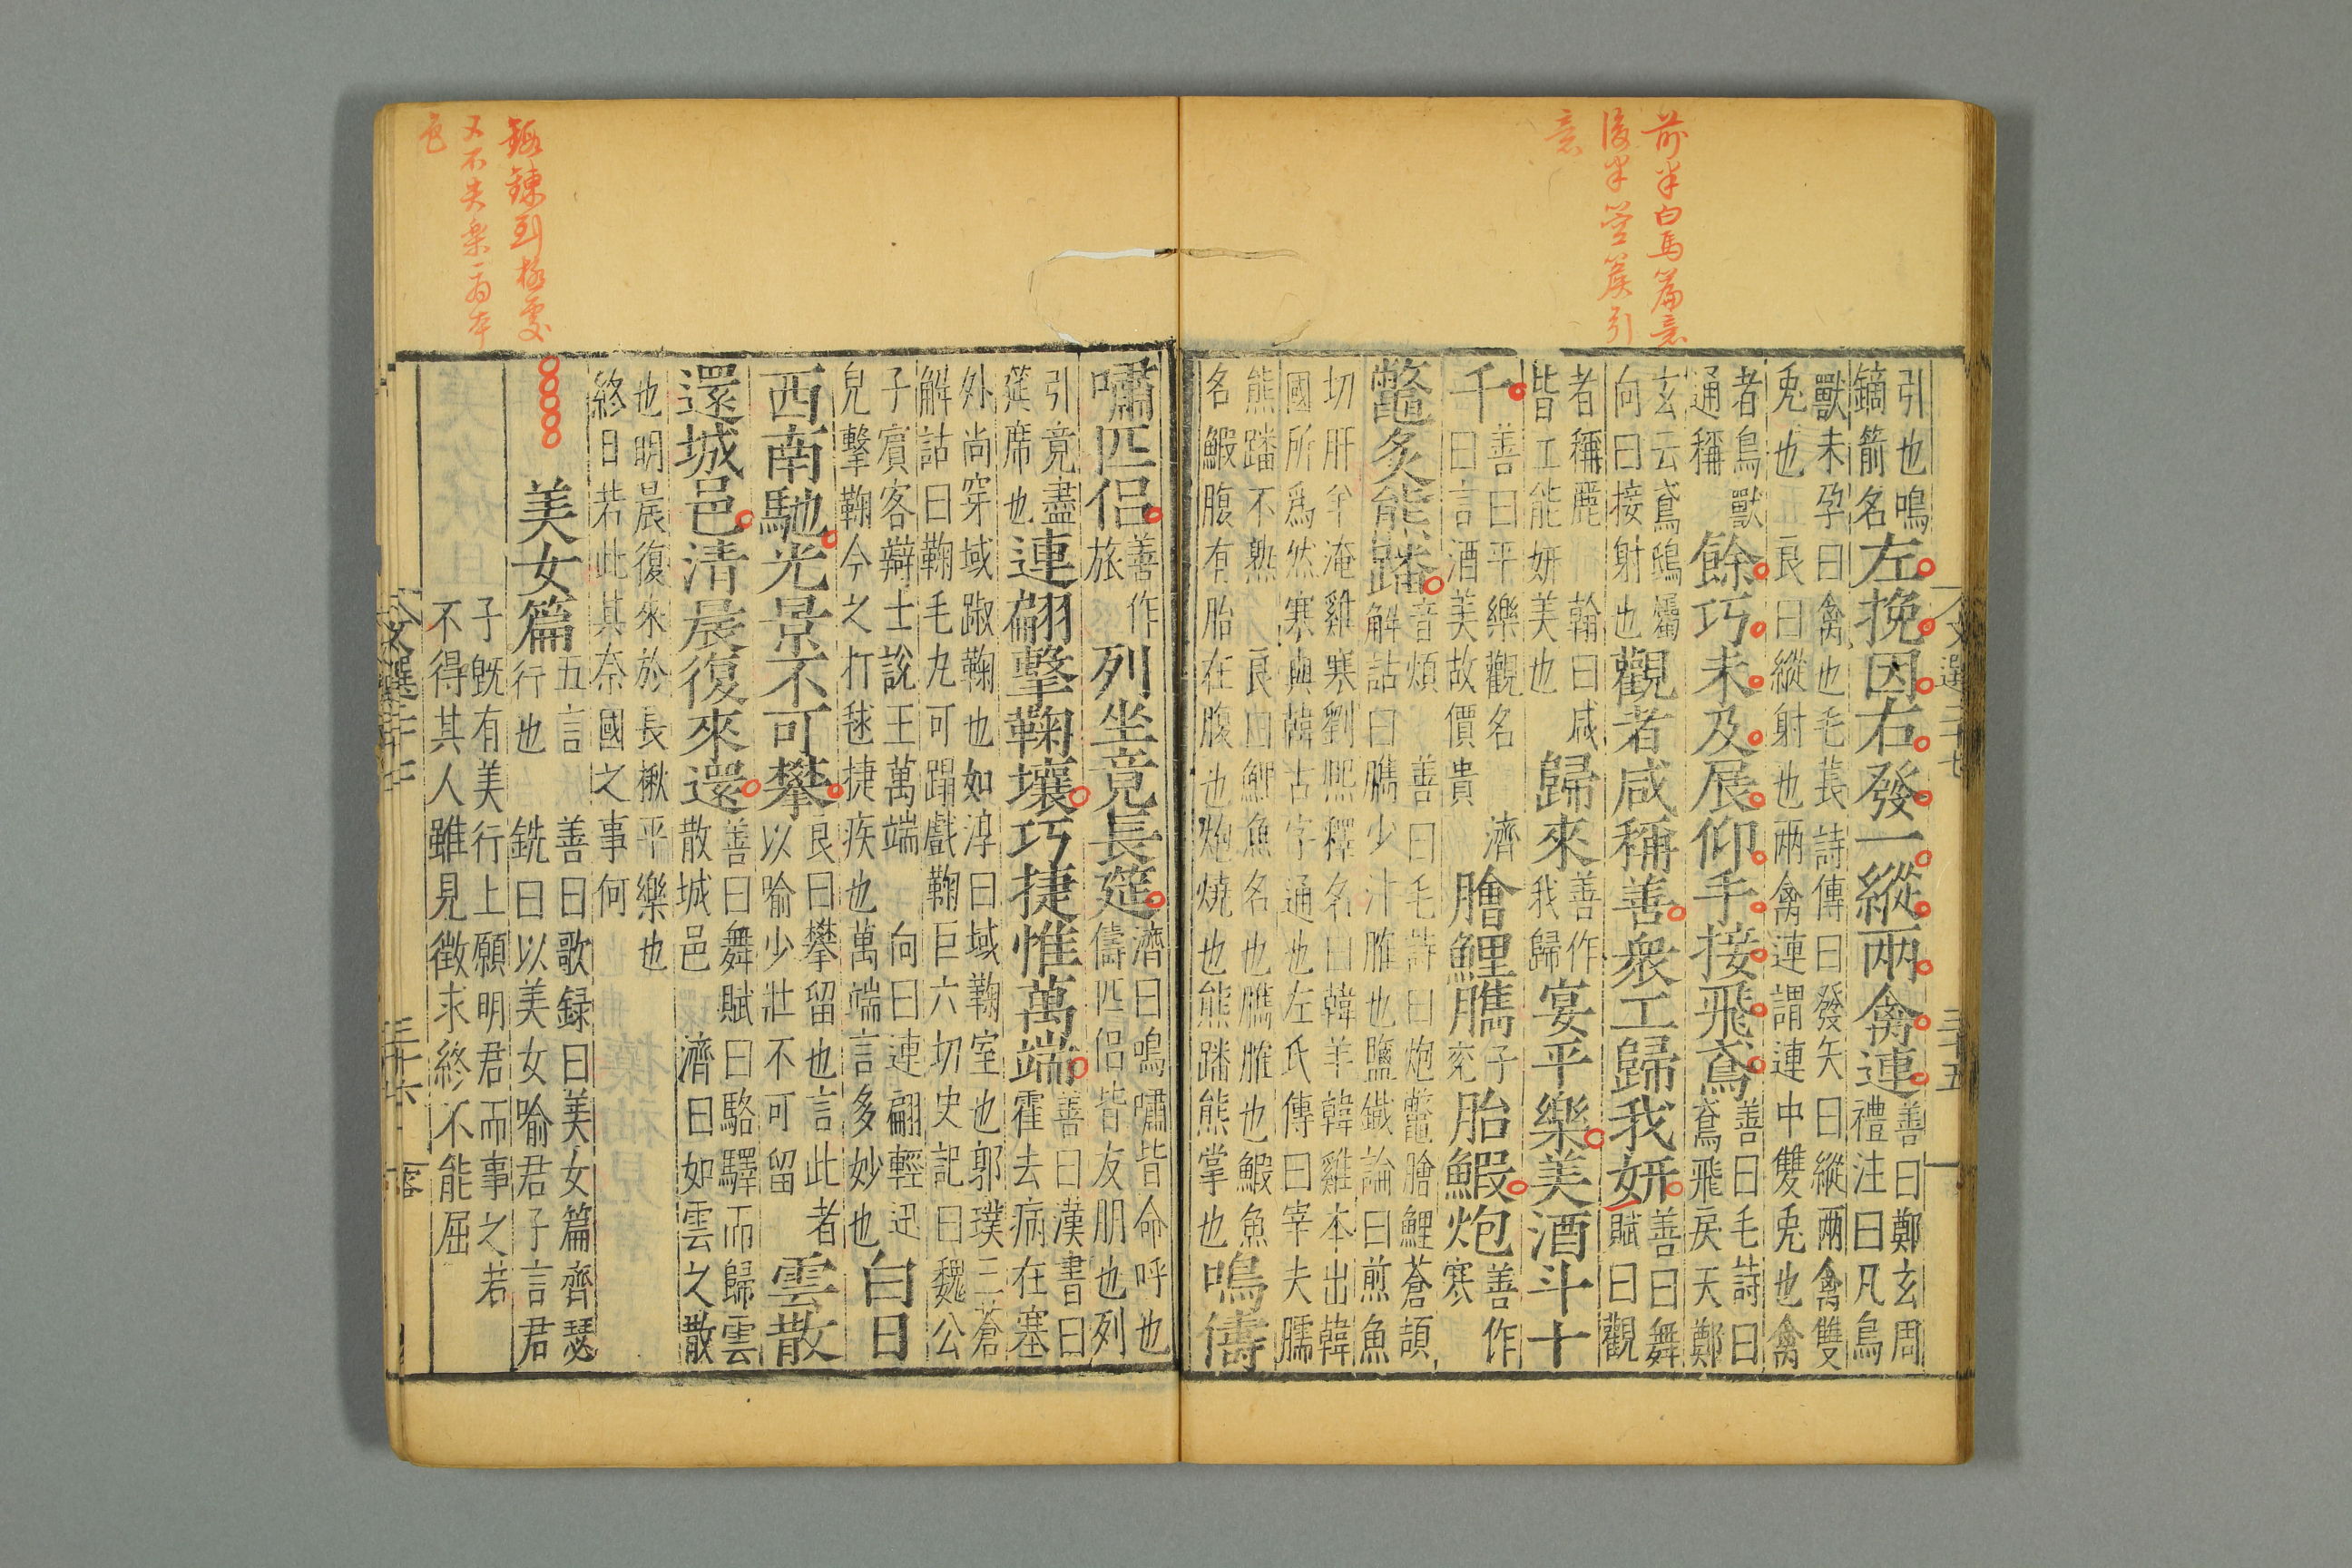 前半白馬篇意
後半箜篌引
意
引也鳴
鏑箭名左挽因右發一縱兩禽連善曰鄭玄周
禮注曰凡鳥
獸未孕曰禽也毛萇詩傳曰發矢曰縱兩禽雙
兎也良曰縱射也兩禽連謂連中雙兎也禽
者鳥獸
通稱餘巧未及展仰手接飛鳶善曰毛詩曰
鳶飛戾天鄭
玄云鳶鴟屬
向曰接射也觀者咸稱善衆工歸我妍善曰舞
賦曰觀
者稱麗翰曰咸
皆工能妍美也歸來善作
我歸宴平樂美酒斗十
千善曰平樂觀名濟
曰言酒美故價貴膾鯉臇子
兖胎鰕炮善作
寒
鼈炙熊蹯音煩善曰毛詩曰炮鼈膾鯉蒼頡
解詁曰臇少汁臛也鹽鐵論曰煎魚
切肝羊淹雞寒劉熙釋名曰韓羊韓雞本出韓
國所爲然寒與韓古字通也左氏傳曰宰夫胹
熊蹯不熟良曰鯉魚名也臇臛也鰕魚
名鰕腹有胎在腹也炮燒也熊蹯熊掌也鳴儔
嘯匹侶善作
旅列坐竟長筵濟曰鳴嘯皆命呼也
儔匹侶皆友朋也列
引竟盡
筵席也連翩擊鞠壤巧捷惟萬端善曰漢書曰
霍去病在塞
外尚穿域蹴鞠也如淳曰域鞠室也郭璞三蒼
解詁曰鞠毛丸可蹋戲鞠巨六切史記曰魏公
子賓客辯士說王萬端向曰連翩輕迅
皃擊鞠今之打毬捷疾也萬端言多妙也白日
西南馳光景不可攀良曰攀留也言此者
以喻少壯不可留雲散
還城邑清晨復來還善曰舞賦曰駱驛而歸雲
散城邑濟曰如雲之散
也明晨復來於長楸平樂也
終日若此其奈國之事何
美女篇五言善曰歌録曰美女篇齊瑟
行也銑曰以美女喻君子言君
子旣有美行上願明君而事之若
不得其人雖見徵求終不能屈
鍜鍊到極處
又不失樂府本
色